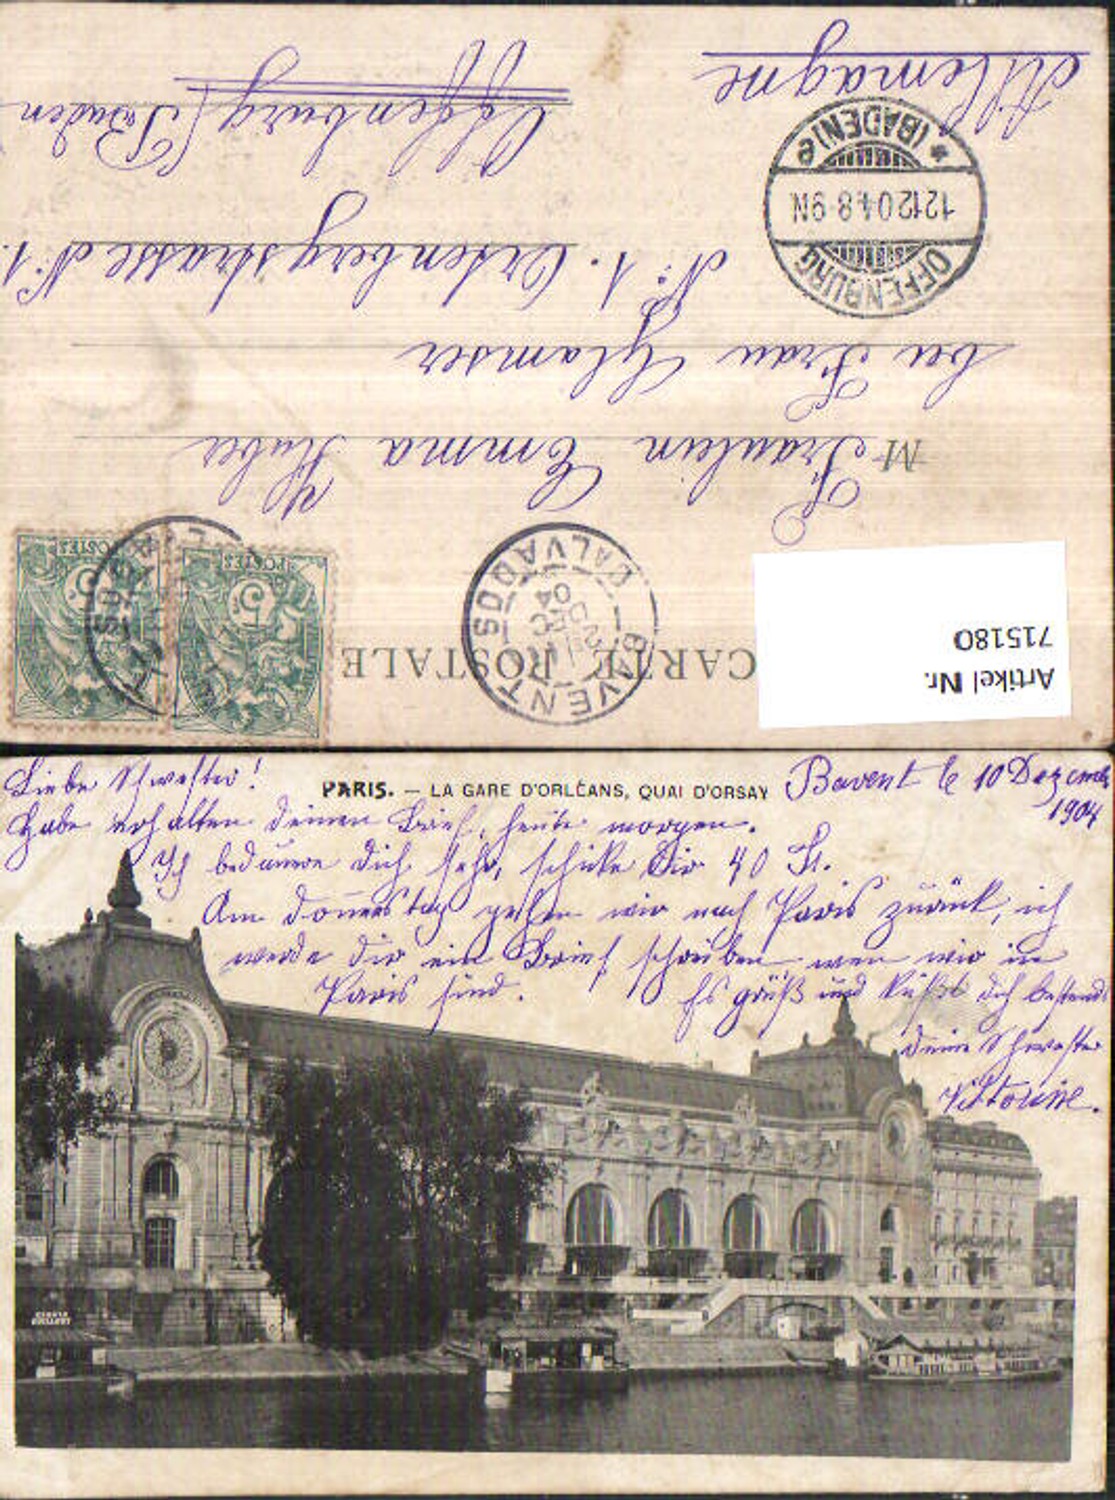 CARTE POSTALE
BAVENT
CALVADOS
POSTES
5
POSTES
5
M Fräulein Emma Huber
bei Frau Sylamser
N: 1. Ortenbergstrasse N: 1.
Offenburg (Baden
Allemagne
OFFENBURG
12.12.04.8-9N.
* (BADEN) e
Artikel Nr.
715180
PARIS. — LA GARE D'ORLÉANS, QUAI D'ORSAY
Bavent le 10 Dezember
1904
Liebe Schwester!
Habe erhalten deinen Brief, heute morgen.
Ich bedauere dich sehr, schicke Dir 40 Fr.
Am Donnerstag gehen wir nach Paris zurück, ich
werde dir ein Brief schreiben wen wir in
Paris sind.
Es grüßt und küßt dich bestens
deine Schwester
Viktorine.